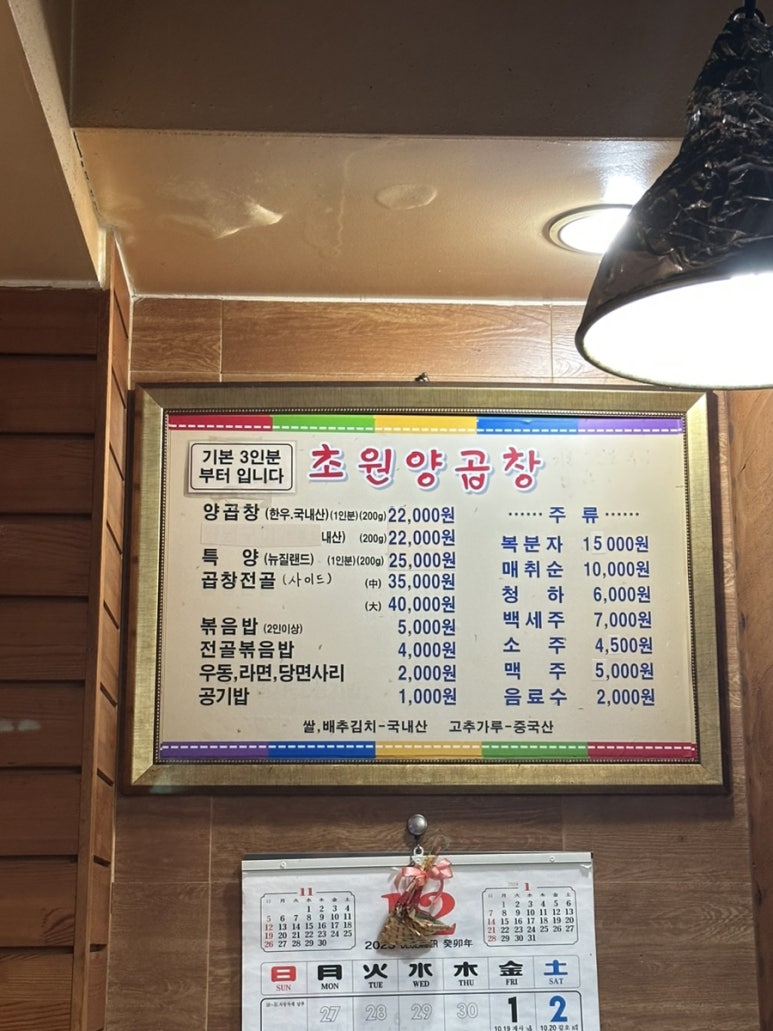 기본 3인분
부터 입니다
초원양곱창
양곱창 (한우.국내산)(1인분)(200g) 22,000원
내산) (200g) 22,000원
특 양 (뉴질랜드) (1인분)(200g) 25,000원
곱창전골 (사이드) (中) 35,000원
(大) 40,000원
볶음밥 (2인이상) 5,000원
전골볶음밥 4,000원
우동,라면,당면사리 2,000원
공기밥 1,000원
······ 주 류 ······
복분자 15000원
매취순 10,000원
청 하 6,000원
백세주 7,000원
소 주 4,500원
맥 주 5,000원
음료수 2,000원
쌀,배추김치-국내산 고추가루-중국산
11
日 月 火 水 木 金 土
1 2 3 4
5 6 7 8 9 10 11
12 13 14 15 16 17 18
19 20 21 22 23 24 25
26 27 28 29 30
12
2023 DECEMBER 癸卯年
2024 1
日 月 火 水 木 金 土
1 2 3 4 5 6
7 8 9 10 11 12 13
14 15 16 17 18 19 20
21 22 23 24 25 26 27
28 29 30 31
日 月 火 水 木 金 土
SUN MON TUE WED THU FRI SAT
27 28 29 30 1 2
10.19 10.20